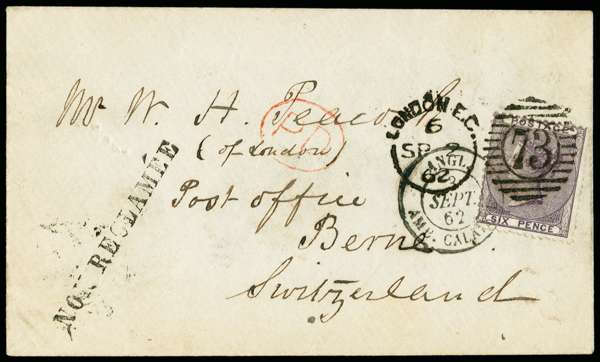 Mr W. H. Peacock
(of London)
Post office
Berne
Switzerland
NON RECLAMÉE
PD
LONDON E.C.
6
SP 2
62
73
ANGL.
2
SEPT.
62
AMB. CALAIS
POSTAGE
SIX PENCE